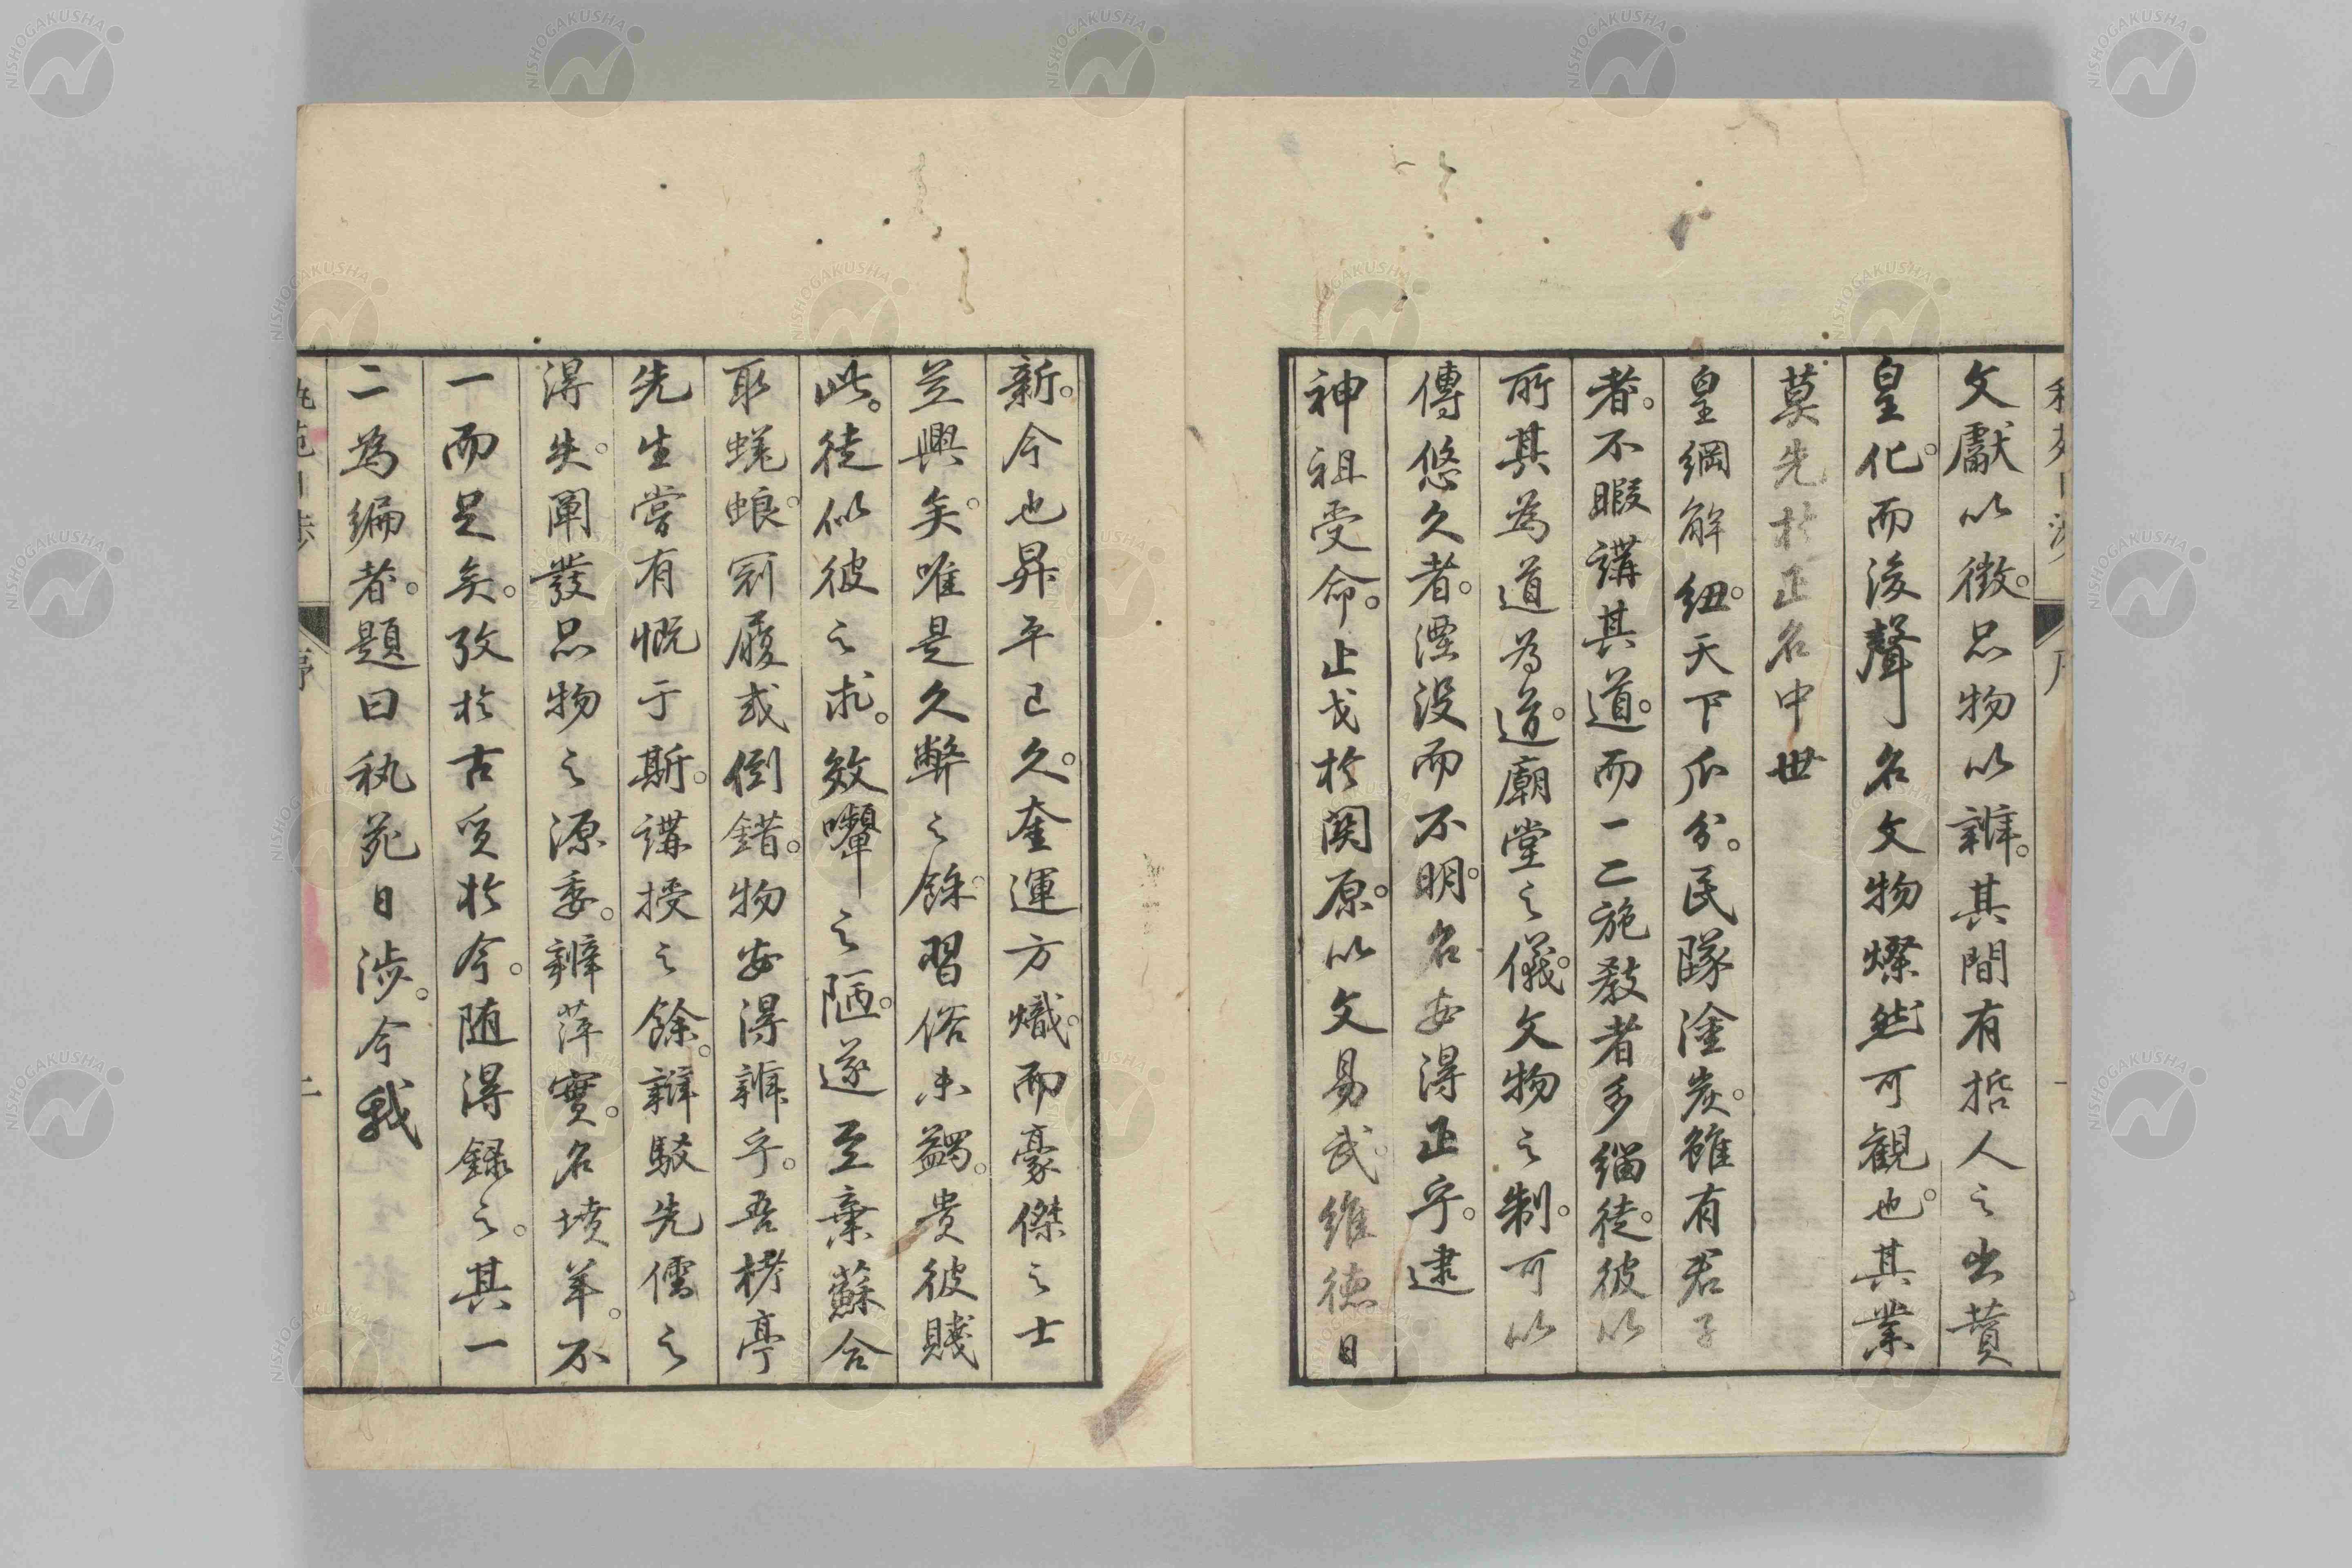 文獻以徴。品物以辨。其間有哲人之出賁
皇化。而後聲名文物燦然可觀也。其業
莫先於正名中世
皇綱解紐。天下瓜分。民隊塗炭。雖有君子
者。不暇講其道。而一二施教者多緇徒。彼以
所其為道為道。廟堂之儀。文物之制。可以
傳悠久者。湮没而不明。名安得正乎。逮
神祖受命。止戈於関原。以文易武。維德日
新。今也昇平已久。奎運方熾。而豪傑之士
並興矣。唯是久弊之餘。習俗未蠲。貴彼賤
此。徒似彼之求。效嚬之陋。遂至棄蘇合
取蜣蜋。冠履或倒錯。物安得辨乎。吾栲亭
先生嘗有慨于斯。講授之餘。辯駁先儒之
得失。闡發品物之源委。辨萍實。名墳羊。不
一而足矣。攷於古質於今。随得録之。其一
二為編者。題曰秇苑日渉。今我
序
二
NISHOGAKUSHA